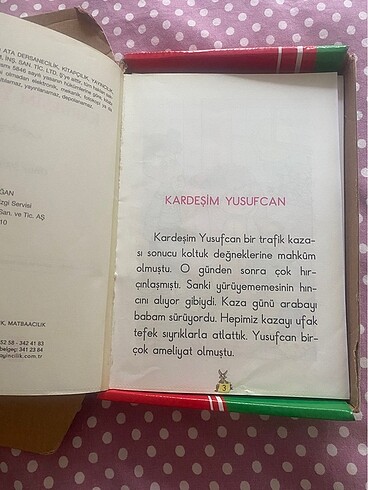 ATA DERSANECİLİK, KİTAPÇILIK, YAYINCILIK,
İNŞ. SAN. TİC. LTD. Ş'ye aittir,
5846 sayılı yasanın hükümlerine göre,
olmadan elektronik, mekanik, fotokopi
yayınlanamaz, depolanamaz.
Servisi
San. ve Tic. AŞ
10
MATBAACILIK
52 58 - 342 41 83
belgeç: 341 23 84
yayincilik.com.tr
KARDEŞİM YUSUFCAN
Kardeşim Yusufcan bir trafik kaza-
sı sonucu koltuk değneklerine mahkûm
olmuştu. O günden sonra çok hır-
çınlaşmıştı. Sanki yürüyememesinin hın-
cını alıyor gibiydi. Kaza günü arabayı
babam sürüyordu. Hepimiz kazayı ufak
tefek sıyrıklarla atlattık. Yusufcan bir-
çok ameliyat olmuştu.
3